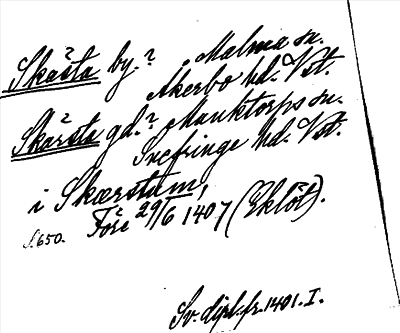 Skästa by.? Malma sn.
Åkerbo hd. Vst.
Skärsta gd.? Munktorps sn.
Snefringe hd. Vst.
i Skærstum,
Före 29/6 1407 (Eklöt).
s. 650.
Sv. dipl. fr. 1401. I.